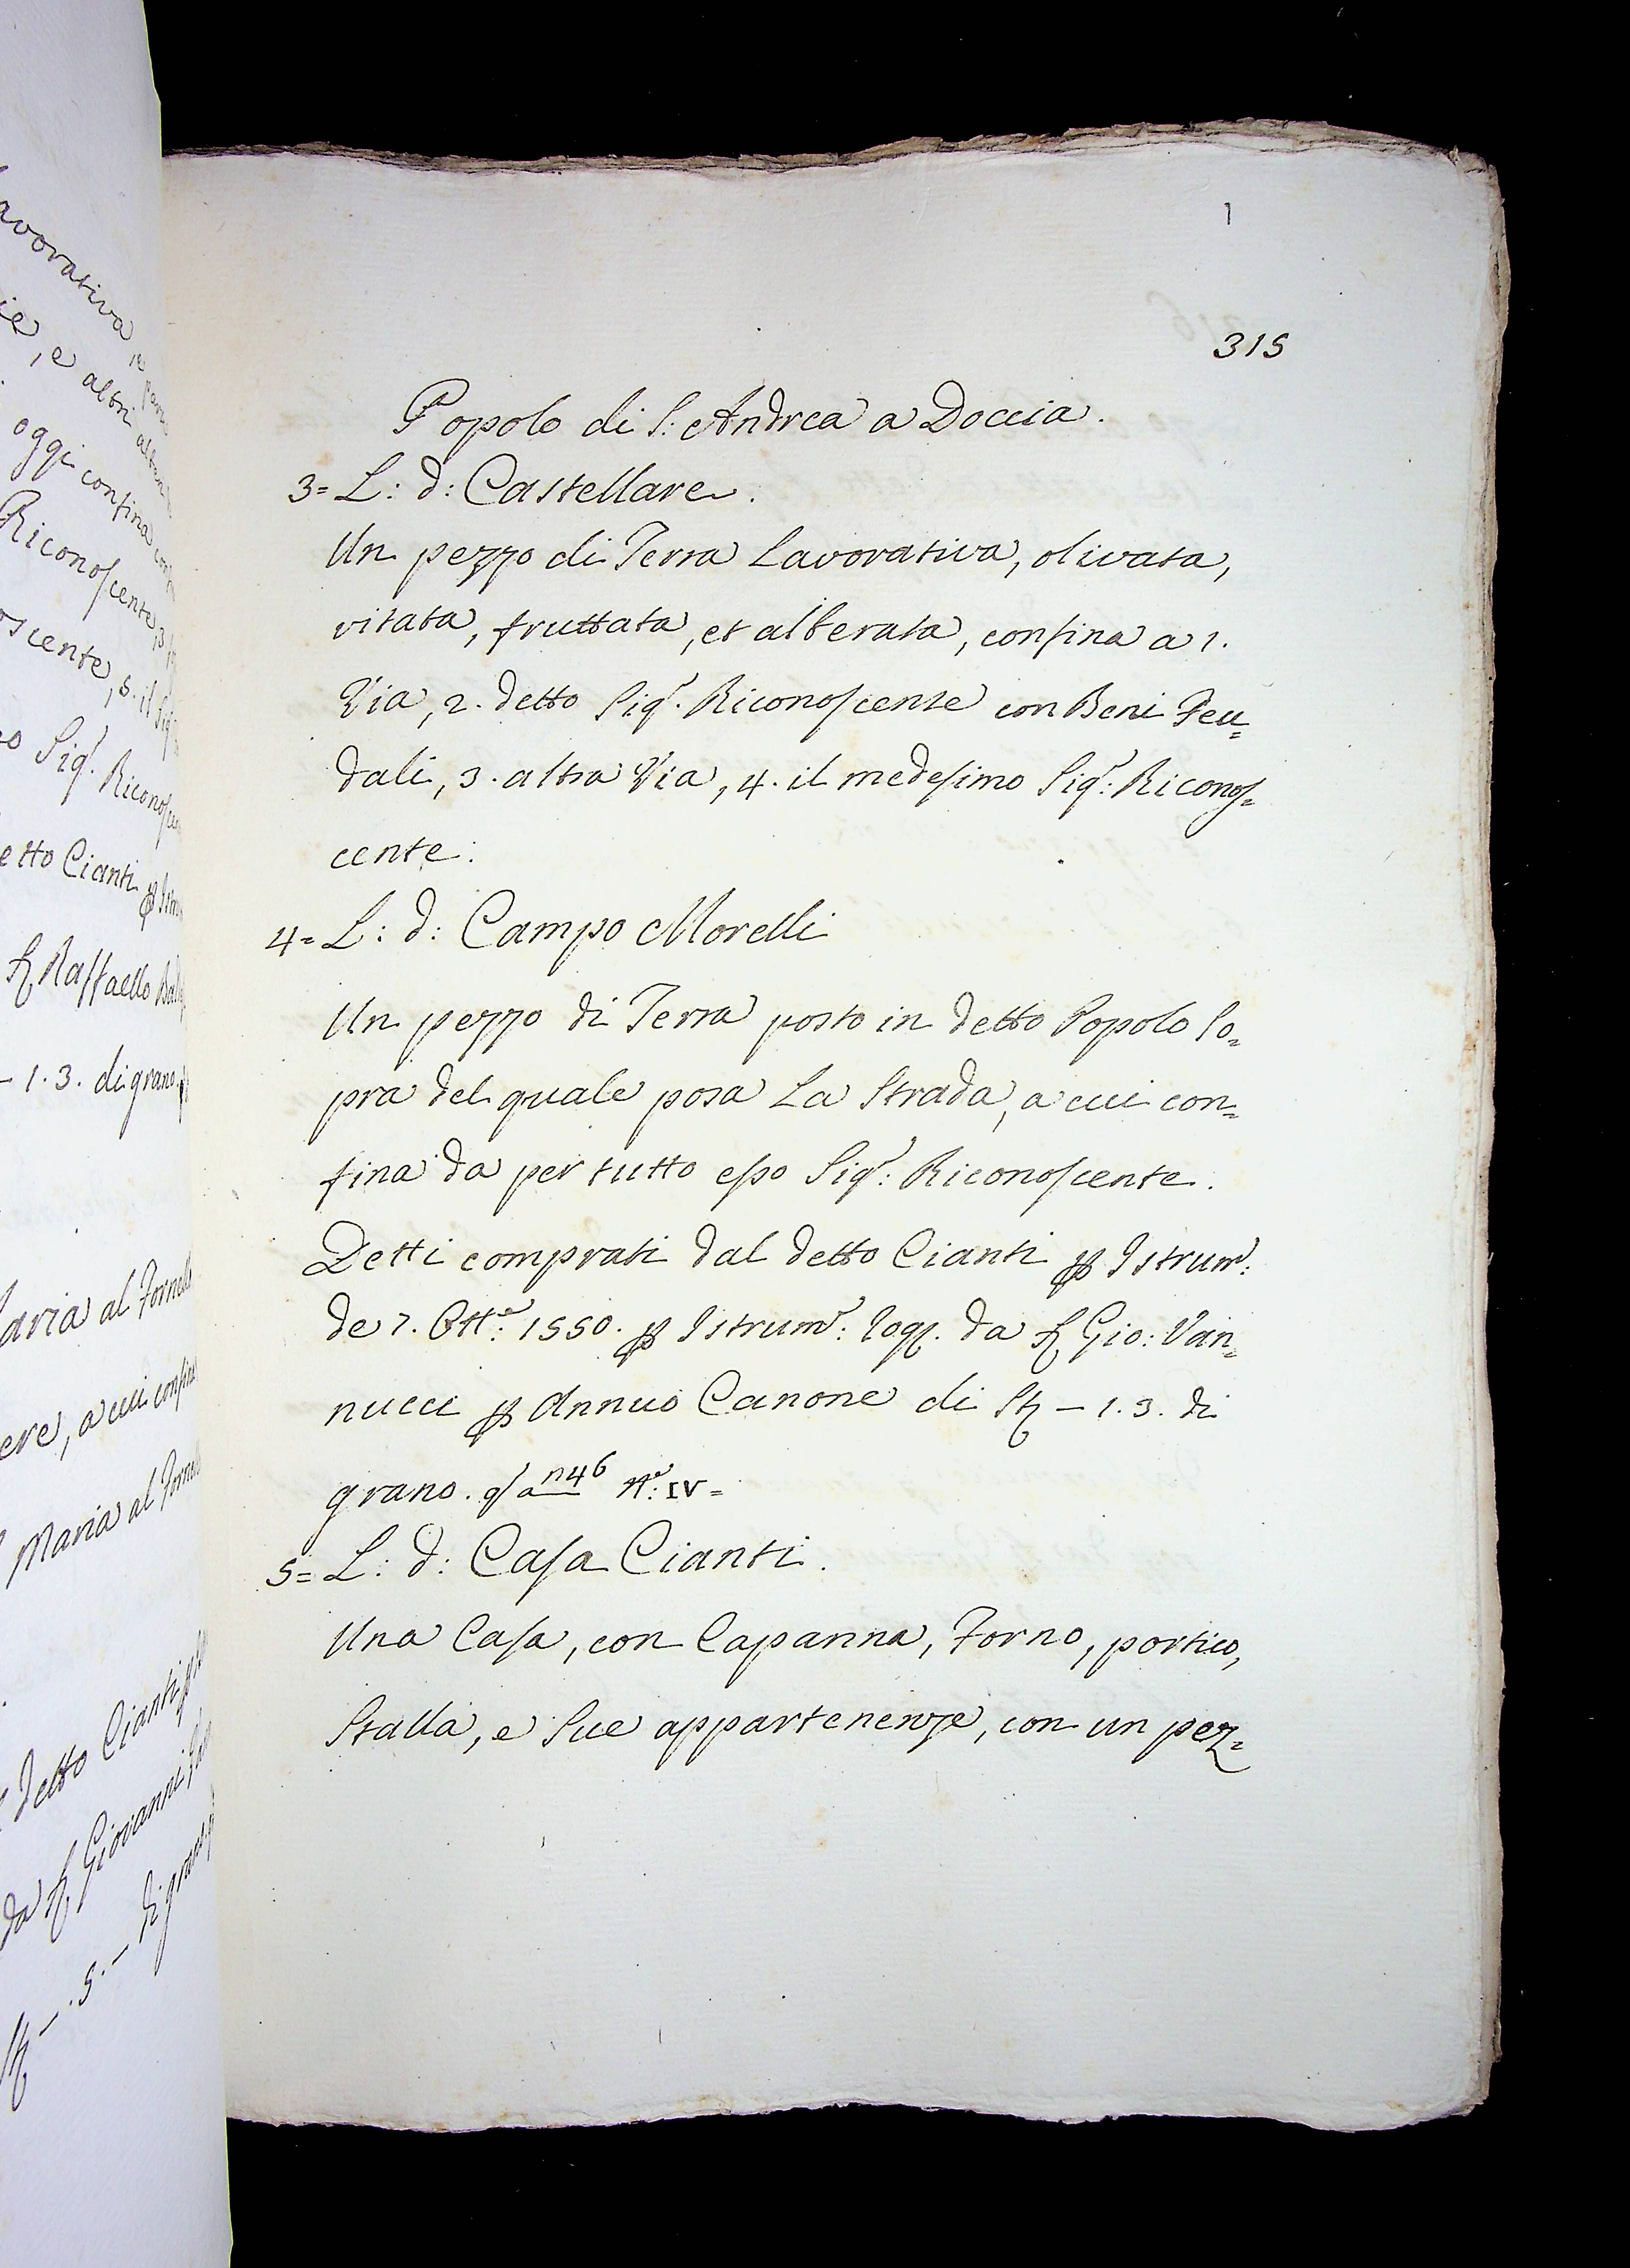 avorativa, e
ie, e altri
oggi confina
Riconoscente, 3
oscente, 5. il Sigr
o Sigr. Riconos
etto Cianti
Raffaello
– 1. 3. di grano
aria al Fornello
ere, a cui confina
Maria al
detto Cianti
da Giovanni
– . 5. – di grano
1
315
Popolo di S: Andrea a Doccia.
3= L: d: Castellare.
Un pezzo di Terra Lavorativa, olivata,
vitata, fruttata, et alberata, confina a 1.
Via, 2. detto Sigr. Riconoscente con Beni Feu=
dali, 3. altra Via, 4. il medesimo Sigr: Riconos=
cente.
4= L: d: Campo Morelli
Un pezzo di Terra posto in detto Popolo So=
pra del quale posa La Strada, a cui con=
fina da per tutto esso Sigr: Riconoscente.
Detti comprati dal detto Cianti p Istrumo:
de 7. Otte: 1550. p Istrumo: Rog. da Gio: Van=
nucci p Annuo Canone di St – 1. 3. di
grano. n 46 No: IV=
5= L: d: Casa Cianti.
Una Casa, con Capanna, Forno, portico,
Stalla, e Sue appartenenze, con un pez=